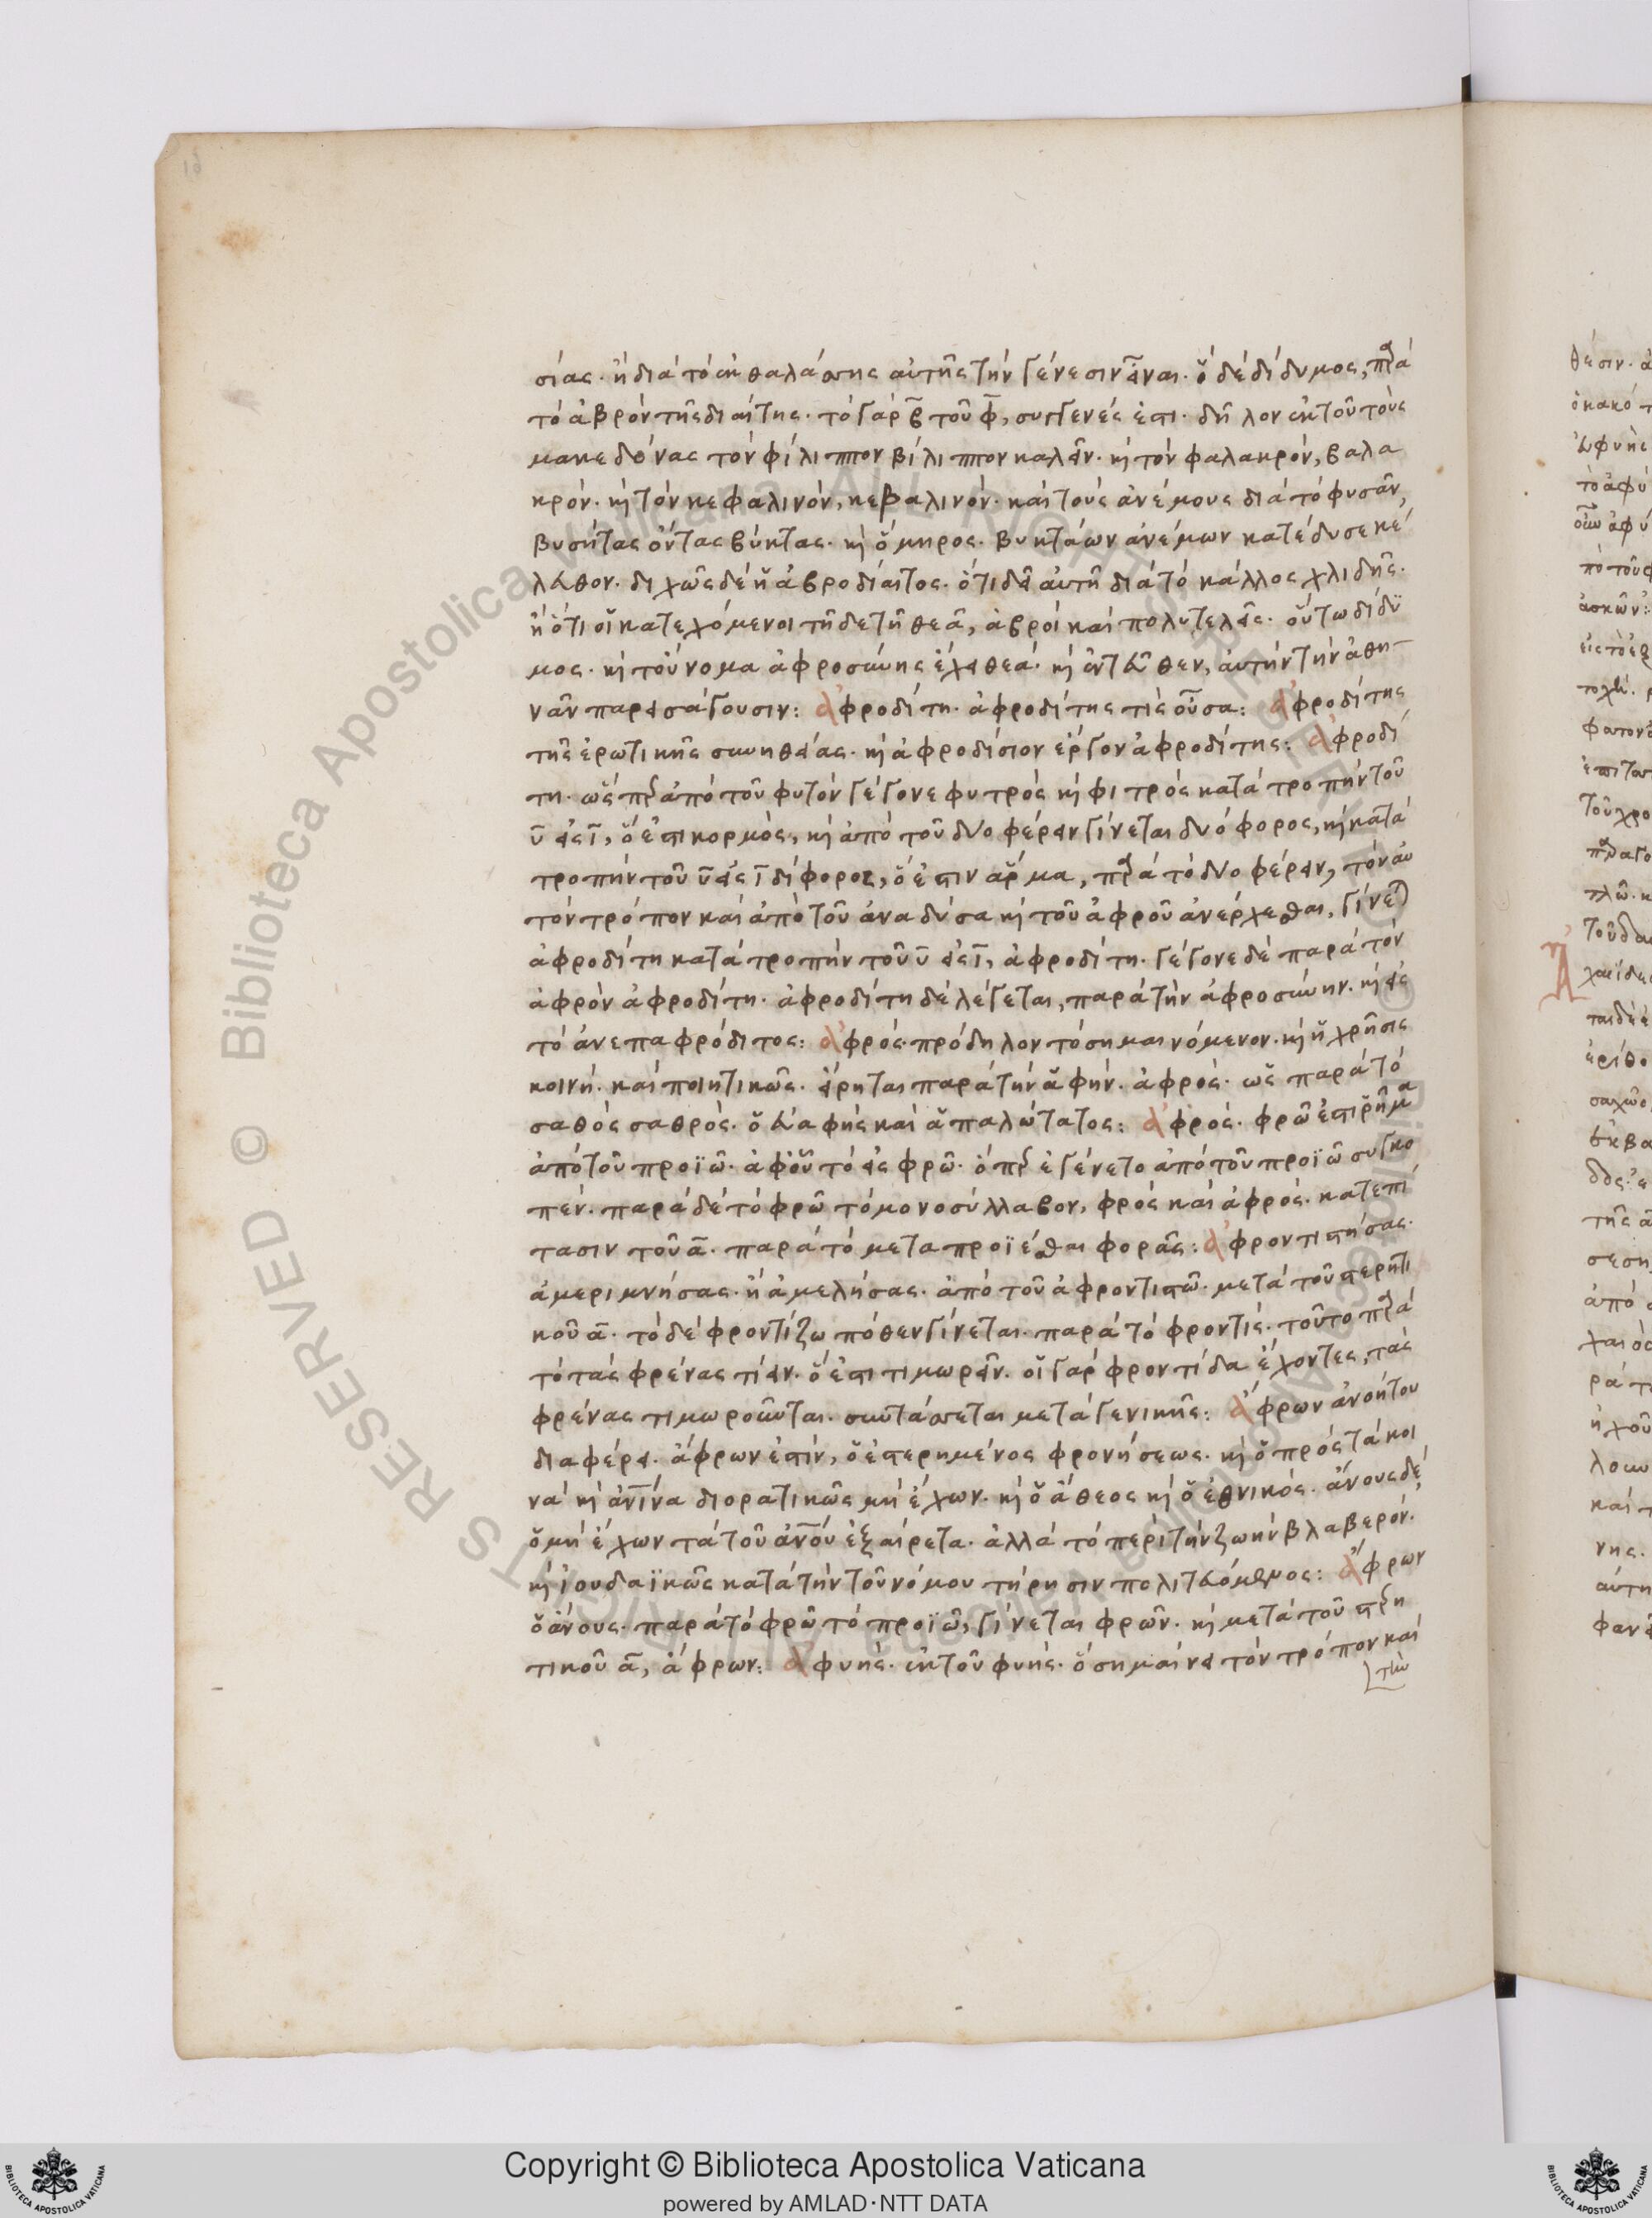 σίας· ἢ διὰ τὸ ἐκ θαλάσσης αὐτῆς τὴν γένεσιν εἶναι· ὁ δὲ δίδυμος, πρὰ
τὸ ἁβρὸν τῆς διαίτης· τὸ γὰρ β τοῦ φ, συγγενές ἐστι· δῆλον ἐκ τοῦ τοὺς
μακεδόνας τὸν φίλιππον βίλιππον καλεῖν· κὶ τὸν φαλακρὸν, βαλα
κρόν· κὶ τὸν κεφαλινὸν, κεβαλινόν· καὶ τοὺς ἀνέμους διὰ τὸ φυσᾶν,
βυσήτας ὄντας βύκτας· κὶ ὅμηρος· βυκτάων ἀνέμων κατέδυσε κέ
λευθον· διχῶς δὲ ἡ ἁβροδίαιτος· ὅτι δεῖ αὐτῆ διὰ τὸ κάλλος χλιδῆς·
ἢ ὅτι οἱ κατεχόμενοι τῆδε τῆ θεᾶ, ἁβροὶ καὶ πολυτελεῖς· οὕτω δίδυ
μος· κὶ τοὔνομα ἀφροσύνης ἔχει θεά· κὶ ἐντεῦθεν, αὐτὴν τὴν ἀθη
νᾶν παρεισάγουσιν: ἀφροδίτη· ἀφροδίτης τίς οὖσα: ἀφροδίτης
τῆς ἐρωτικῆς συνηθείας· κὶ ἀφροδίσιον ἔργον ἀφροδίτης: ἀφροδί
τη· ὥσπερ ἀπὸ τοῦ φυτὸν γέγονε φυτρὸς κὶ φιτρὸς κατὰ τροπὴν τοῦ
υ εἰς ι, ὅ ἐστι κορμὸς, κὶ ἀπὸ τοῦ δύο φέρειν γίνεται δυόφορος, κὶ κατὰ
τροπὴν τοῦ υ εἰς ι δίφορος, ὅ ἐστιν ἅρμα, πρὰ τὸ δύο φέρειν, τὸν αυ
τὸν τρόπον καὶ ἀπὸ τοῦ ἀναδύσα κὶ τοῦ ἀφροῦ ἀνέρχεσθαι, γίνε
ἀφροδίτη κατὰ τροπὴν τοῦ υ εἰς ι, ἀφροδίτη· γέγονε δὲ παρὰ τὸν
ἀφρὸν ἀφροδίτη· ἀφροδίτη δὲ λέγεται, παρὰ τὴν ἀφροσύνην· κὶ εἰς
τὸ ἀνεπαφρόδιτος: ἀφρός· πρόδηλον τὸ σημαινόμενον· κὶ ἡ χρῆσις
κοινή· καὶ ποιητικῶς· εἴρηται παρὰ τὴν ἁφήν· ἀφρός· ὡς παρὰ τὸ
σαθὸς σαθρός· ὁ εὐαφὴς καὶ ἁπαλώτατος: ἀφρός· φρῶ ἐστι ῥῆμα
ἀπὸ τοῦ προϊῶ· ἀφ' οὗ τὸ εἰς φρῶ· ὅπερ ἐγένετο ἀπὸ τοῦ προϊῶ συγκο
πέν· παρὰ δὲ τὸ φρῶ τὸ μονοσύλλαβον, φρὸς καὶ ἀφρός· κατ' ἐπί
τασιν τοῦ α· παρὰ τὸ μετὰ προϊέσθαι φορᾶς: ἀφροντιστήσας·
ἀμεριμνήσας· ἢ ἀμελήσας· ἀπὸ τοῦ ἀφροντιστῶ· μετὰ τοῦ στερητι
κοῦ α· τὸ δὲ φροντίζω πόθεν γίνεται· παρὰ τὸ φροντίς· τοῦτο πρὰ
τὸ τὰς φρένας τίειν· ὅ ἐστι τιμωρεῖν· οἱ γὰρ φροντίδα ἔχοντες, τὰς
φρένας τιμωροῦνται· συντάσσεται μετὰ γενικῆς: ἄφρων ἀνοήτου
διαφέρει· ἄφρων ἐστὶν, ὁ ἐστερημένος φρονήσεως· κὶ ὁ πρὸς τὰ κοι
νὰ κὶ ἀνινα διορατικῶς μὴ ἔχων· κὶ ὁ ἄθεος κὶ ὁ ἐθνικός· ἄνους δὲ,
ὁ μὴ ἔχων τὰ τοῦ ἀνοῦ ἐξαίρετα· ἀλλὰ τὸ περὶ τὴν ζωὴν βλαβερόν·
κὶ ἰουδαϊκῶς κατὰ τὴν τοῦ νόμου τήρησιν πολιτευόμενος: ἄφρων
ὁ ἄνους· παρὰ τὸ φρῶ τὸ προϊῶ, γίνεται φρῶν· κὶ μετὰ τοῦ στρη
τικοῦ α, ἄφρων: ἀφυής· ἐκ τοῦ φυής· ὃ σημαίνει τὸν τρόπον καὶ
τὴν